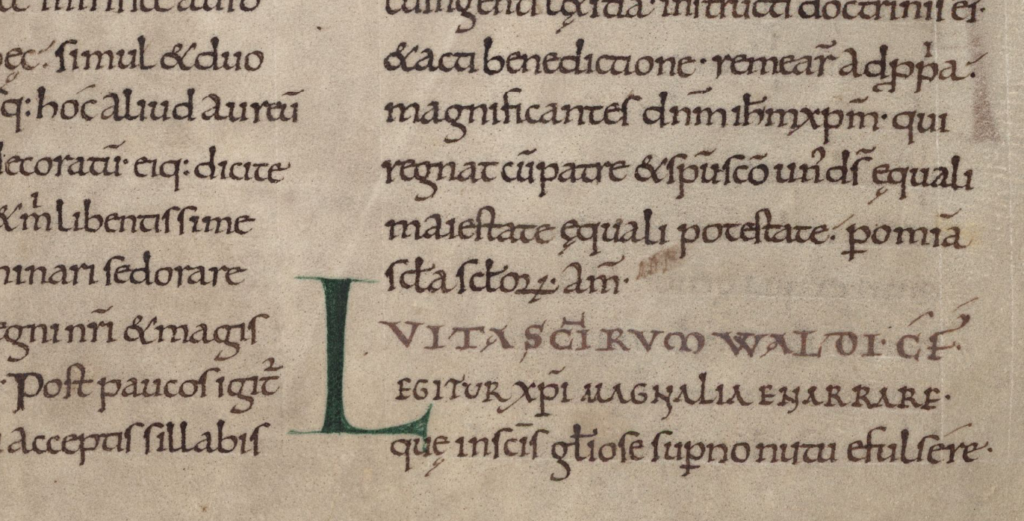 simul &duo
q: hoc̄ aliud aureū
decoratū· eiq: dicite
&m̄ libentissime
minari sedorare
egni nr̄i &magis
· Post paucos igit̄
acceptis sillabis
instructi doctrinis ei·
&acti benedictione· remear̄ adpp̄a·
magnificantes dnm̄ ihm̄xpm̄· qui
regnat cū patre &spū scō un'ds̄ ęquali
maiestate ęquali potestate· p̱ omīa
sc̄ła sc̄łoꝝ· am̄·
VITA SC̄I RVMWALDI· C̄F̄·
LEGITUR XP̄I MAGNALIA ENARRARE·
quę inscīs głiose sup̱no nutu efulsere·